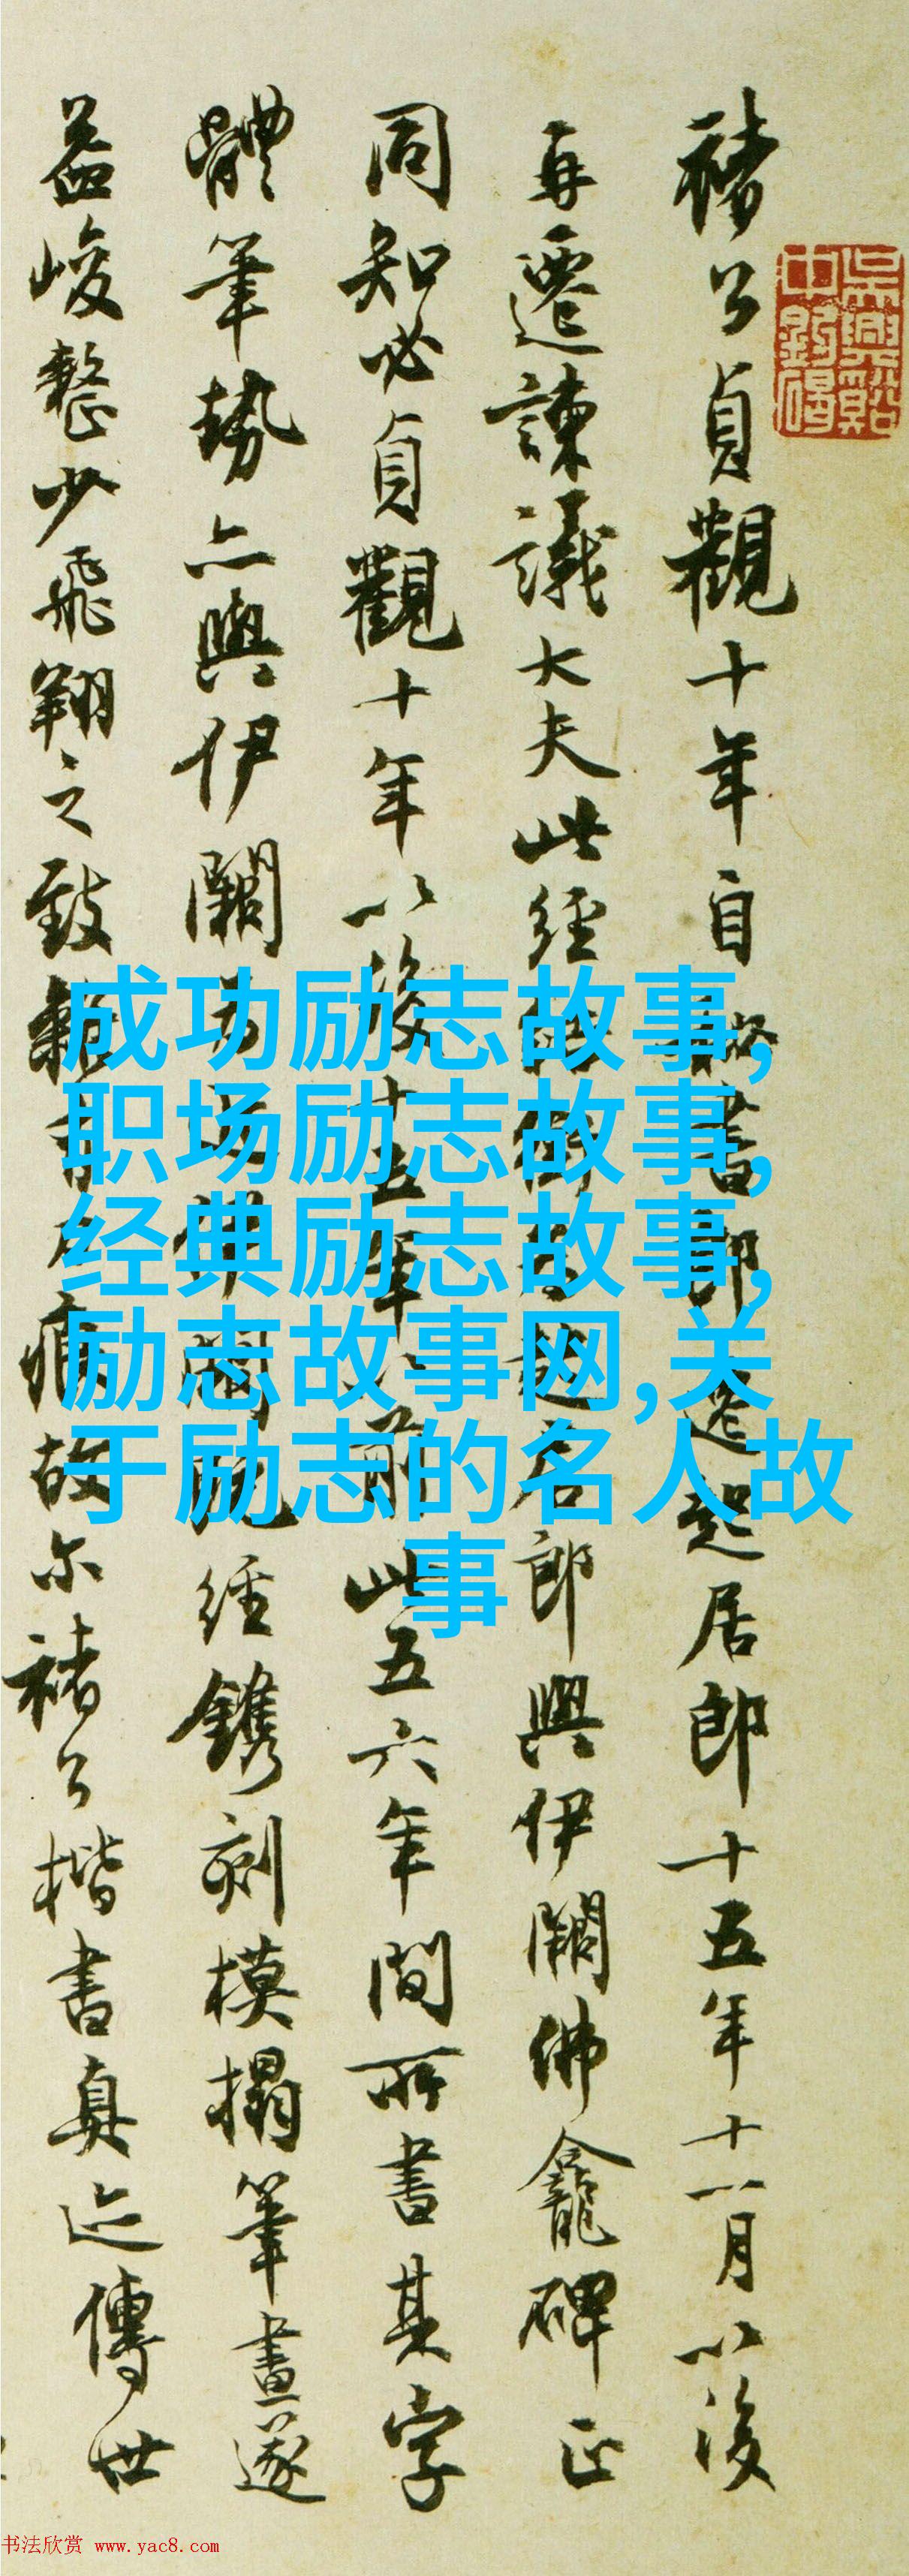 褚公貞觀十年自祕書郎遷起居郎十五年十一月以後
再遷諫議大夫此經結銜為起居郎與伊闕佛龕碑正
同知必貞觀十年以後十五年以前此五六年間所書其字
體筆勢亦與伊闕
經鐫刻模搨筆畫遂
益峻整少飛翔之致
痕故尔褚公楷書真迹傳世
成功励志故事,
职场励志故事,
经典励志故事,
励志故事网,关
于励志的名人故
事
书法欣赏 www.yac8.com